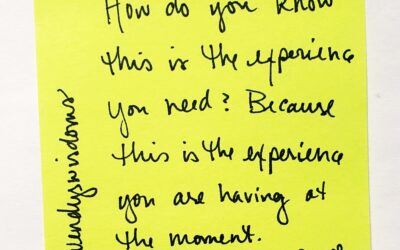 How do you know
this is the experience
you need? Because
this is the experience
you are having at
the moment.
wendyswisdoms